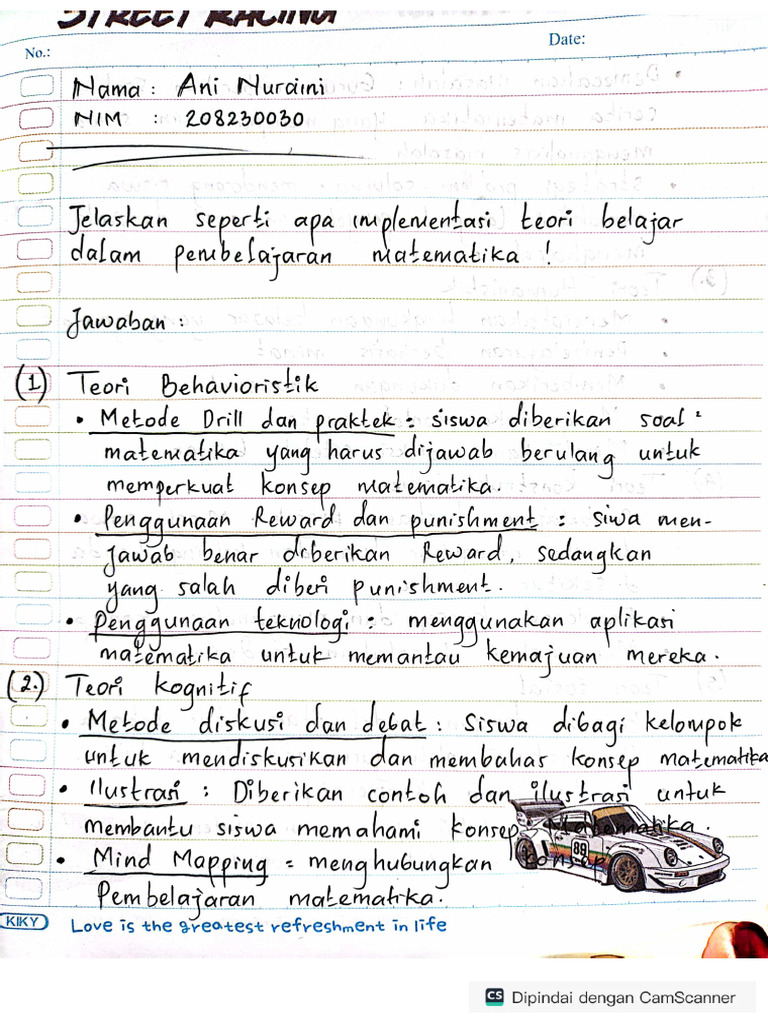 STREET RACING
No.:
Date:
Nama : Ani Nuraini
NIM : 208230030
Jelaskan seperti apa implementasi teori belajar
dalam pembelajaran matematika !
Jawaban :
(1) Teori Behavioristik
• Metode Drill dan praktek : siswa diberikan soal²
matematika yang harus dijawab berulang untuk
memperkuat konsep matematika.
• Penggunaan Reward dan punishment : siwa men-
jawab benar diberikan Reward, sedangkan
yang salah diberi punishment.
• Penggunaan teknologi : menggunakan aplikasi
matematika untuk memantau kemajuan mereka.
(2.) Teori kognitif
• Metode diskusi dan debat : Siswa dibagi kelompok
untuk mendiskusikan dan membahas konsep matematika
• Ilustrasi : Diberikan contoh dan ilustrasi untuk
membantu siswa memahami konsep Matematika.
• Mind Mapping = menghubungkan konsep
Pembelajaran matematika.
89
KIKY
Love is the greatest refreshment in life
CS Dipindai dengan CamScanner